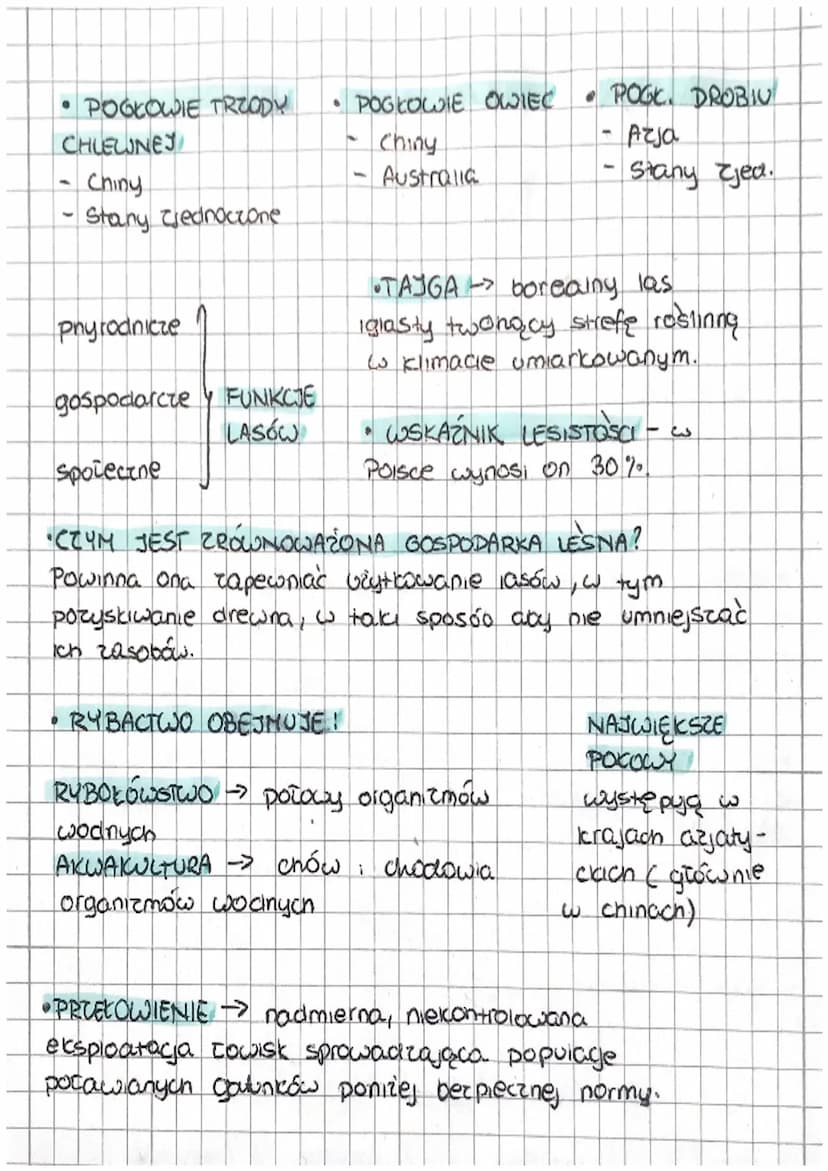 • POGŁOWIE TRZODY
CHLEWNEJ
- Chiny
- Stany zjednoczone
• POGŁOWIE OWIEC
- Chiny
- Australia
• POGŁ. DROBIU
- Azja
- Stany zjed.
przyrodnicze
gospodarcze
społeczne
FUNKCJE
LASÓW
• TAJGA → borealny las
iglasty tworzący strefę roślinną
w klimacie umiarkowanym.
• WSKAŹNIK LESISTOŚCI - w
Polsce wynosi on 30%.
• CZYM JEST ZRÓWNOWAŻONA GOSPODARKA LEŚNA?
Powinna ona zapewniać użytkowanie lasów, w tym
pozyskiwanie drewna, w taki sposób aby nie umniejszać
ich zasobów.
• RYBACTWO OBEJMUJE:
RYBOŁÓWSTWO → połowy organizmów
wodnych
AKWAKULTURA → chów i chodowla
organizmów wodnych
NAJWIĘKSZE
POŁOWY
występują w
krajach azjaty-
ckich (głównie
w chinach)
• PRZEŁOWIENIE → nadmierna, niekontrolowana
eksploatacja łowisk sprowadzająca populacje
poławianych gatunków poniżej bezpiecznej normy.